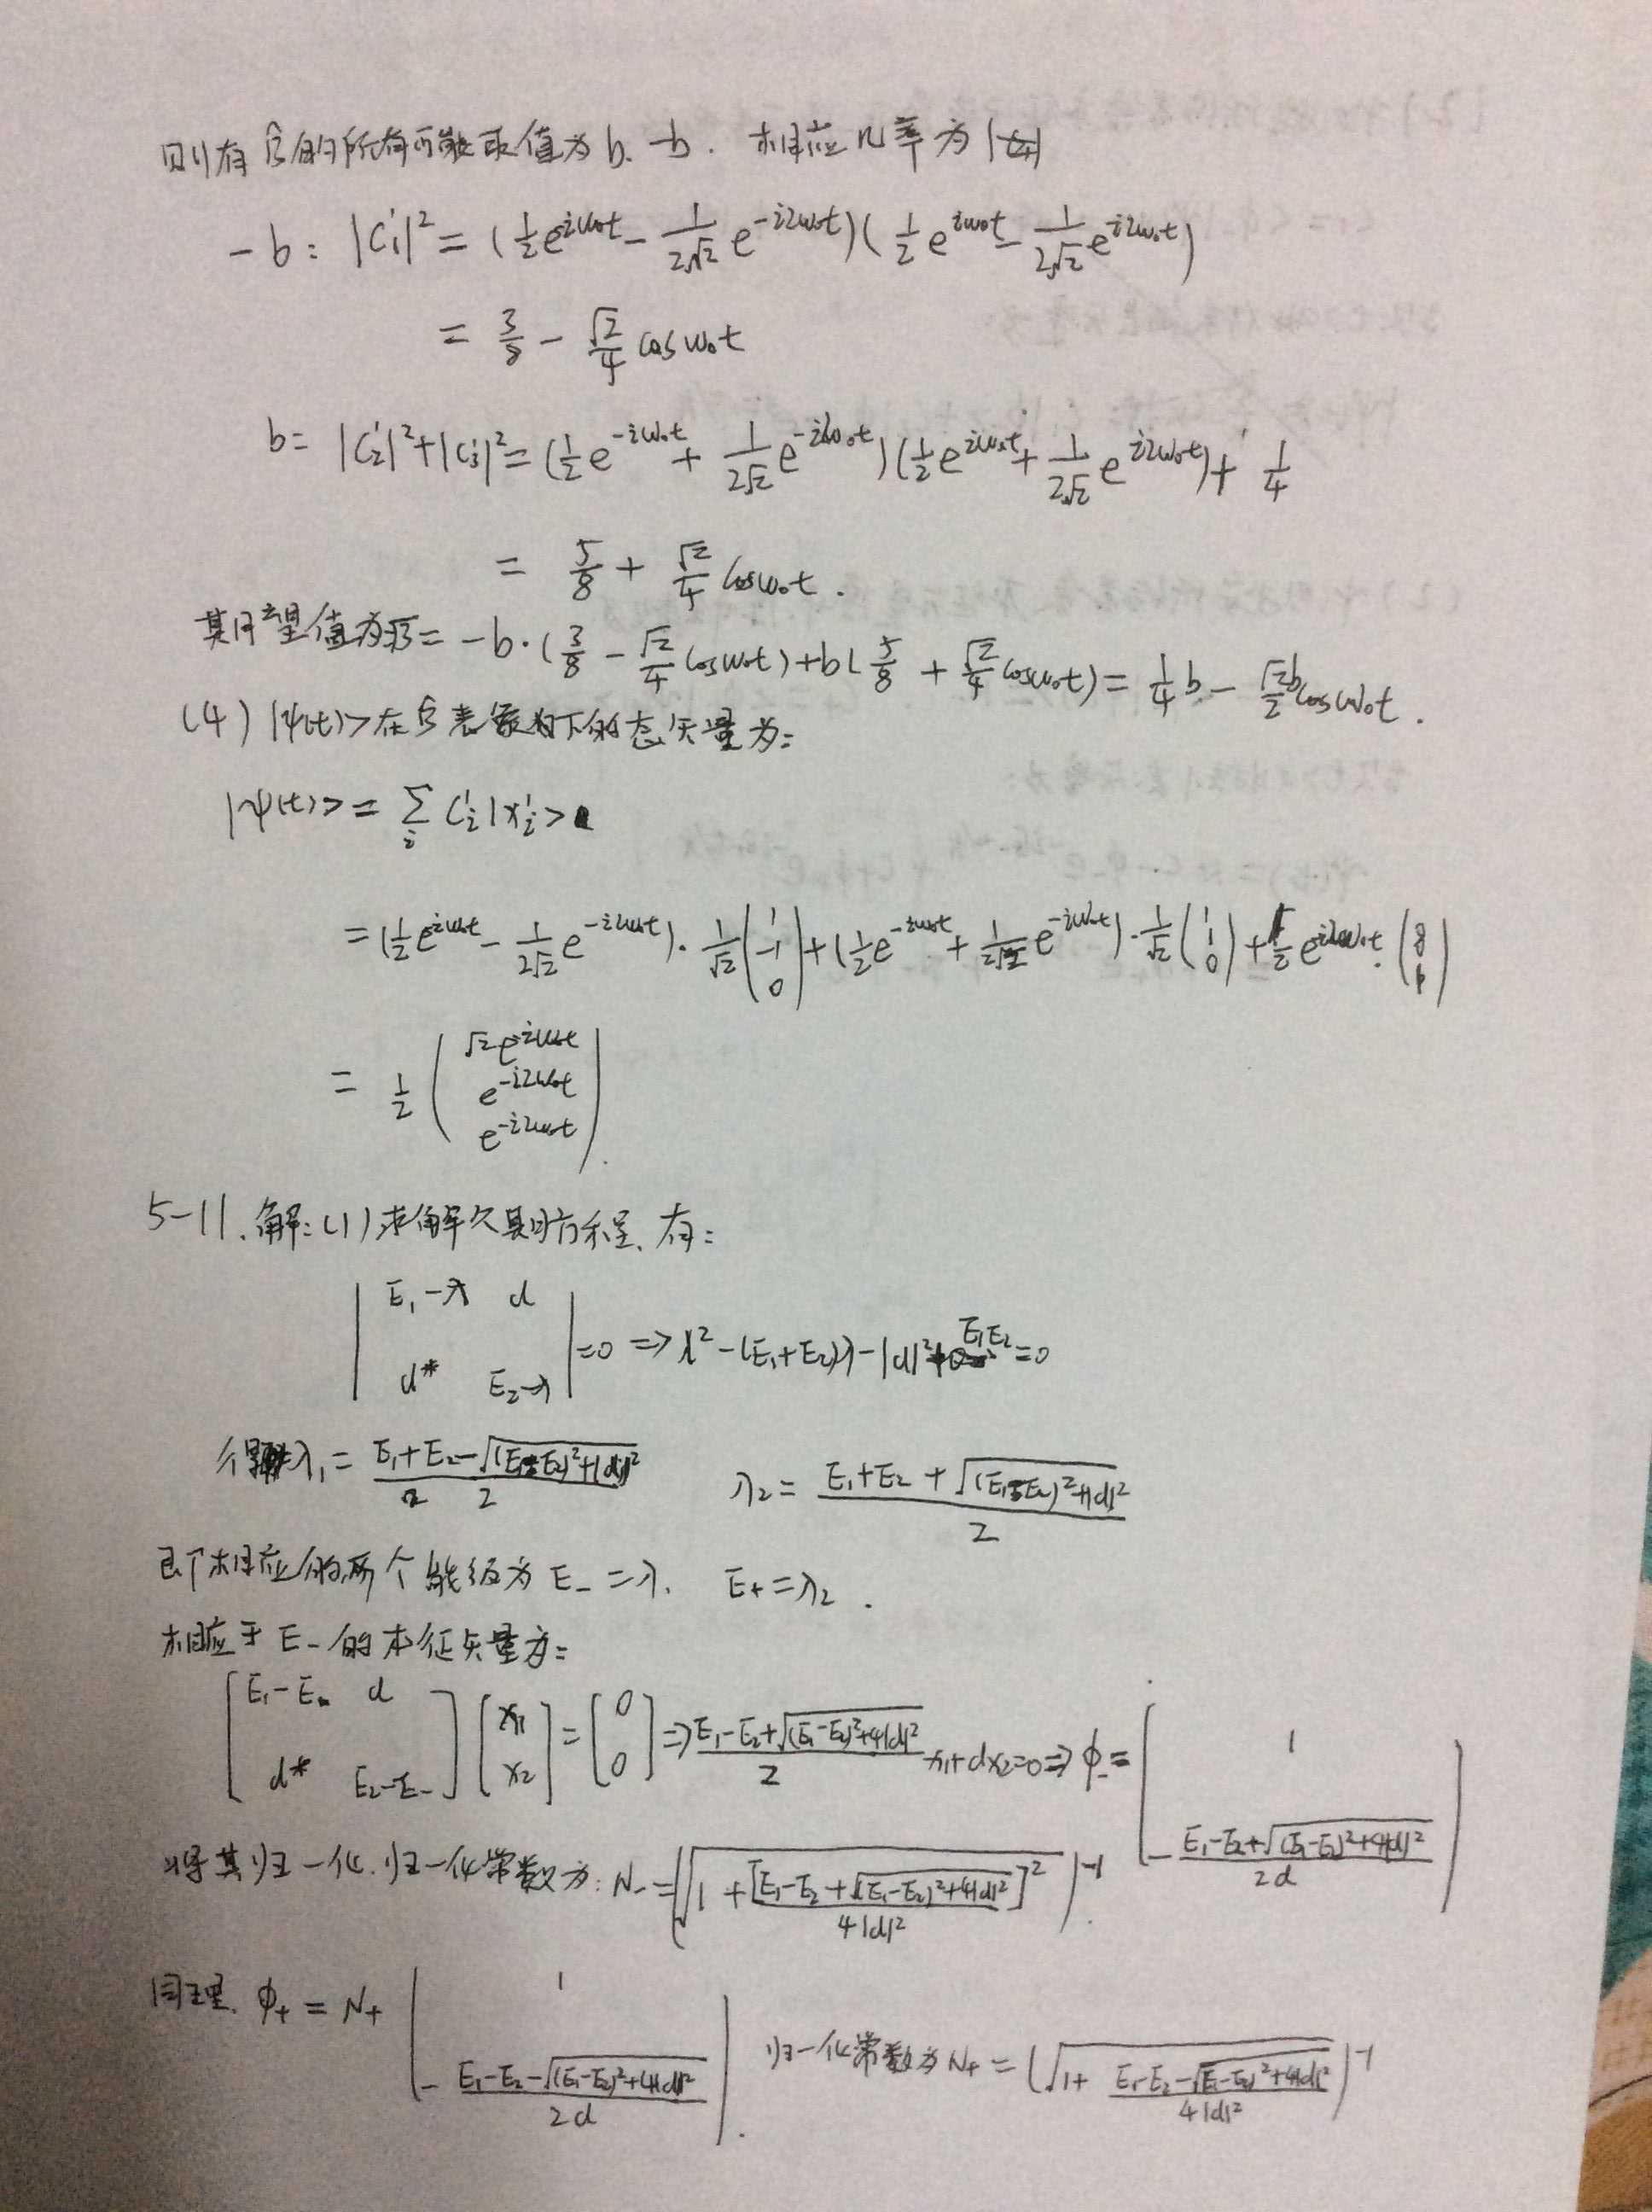 则有Ĝ的所有可能取值为b. -b. 相应几率为
-b: |C₁'|² = (½e^{iω₀t} - 1/(2√2) e^{-i2ω₀t})(½e^{iω₀t} - 1/(2√2) e^{-i2ω₀t})
= 3/8 - √2/4 cosω₀t
b= |C₂'|²+|C₃'|² = (½e^{-iω₀t} + 1/(2√2) e^{-i2ω₀t})(½e^{iω₀t} + 1/(2√2) e^{i2ω₀t}) + 1/4
= 5/8 + √2/4 cosω₀t.
其期望值为 = -b·(3/8 - √2/4 cosω₀t)+b(5/8 + √2/4 cosω₀t) = 1/4 b - √2b/2 cosω₀t.
(4) |ψ(t)>在Ĝ表象下的态矢量为:
|ψ(t)> = Σ_i C_i'|x_i'>
= (½e^{iω₀t} - 1/(2√2) e^{-i2ω₀t})·1/√2 (1 -1 0) + (½e^{-iω₀t} + 1/(2√2) e^{-iω₀t})·1/√2 (1 1 0) + ½e^{-i2ω₀t}·(0 0 1)
= ½ (√2e^{-iω₀t} e^{-i2ω₀t} e^{-i2ω₀t}).
5-11. 解: (1) 求解久期方程, 有:
|E₁-λ d; d* E₂-λ| =0 => λ²-(E₁+E₂)λ-|d|²+E₁E₂=0
得λ₁ = (E₁+E₂-√((E₁-E₂)²+4|d|²))/2 λ₂ = (E₁+E₂+√((E₁-E₂)²+4|d|²))/2
即相应的两个能级为 E₋=λ₁ E₊=λ₂.
相应于E₋的本征矢量为:
[E₁-E₋ d; d* E₂-E₋][x₁; x₂]=[0; 0] => (E₁-E₂+√((E₁-E₂)²+4|d|²))/2 x₁+dx₂=0 => φ₋= [1; -(E₁-E₂+√((E₁-E₂)²+4|d|²))/2d]
将其归一化. 归一化常数为: N₋ = (√(1+[E₁-E₂+√((E₁-E₂)²+4|d|²)]²/4|d|²))⁻¹.
同理. φ₊ = N₊ [1; -(E₁-E₂-√((E₁-E₂)²+4|d|²))/2d]. 归一化常数为N₊ = (√(1+ (E₁-E₂-√((E₁-E₂)²+4|d|²))/4|d|²))⁻¹